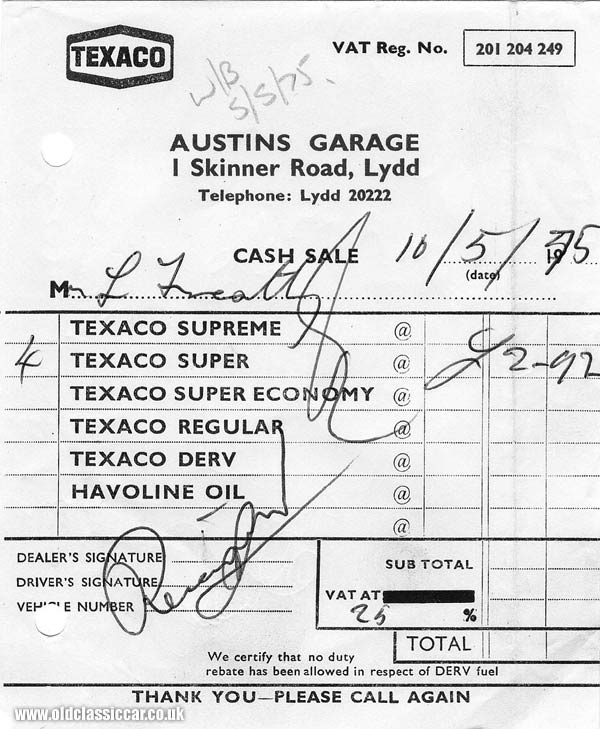 TEXACO
VAT Reg. No. 201 204 249
W/B
5/5/75.
AUSTINS GARAGE
1 Skinner Road, Lydd
Telephone: Lydd 20222
CASH SALE 10/5/1975
(date)
M L Treatt
TEXACO SUPREME @
4 TEXACO SUPER @ £2-92
TEXACO SUPER ECONOMY @
TEXACO REGULAR @
TEXACO DERV @
HAVOLINE OIL @
@
DEALER'S SIGNATURE
DRIVER'S SIGNATURE
VEHICLE NUMBER
SUB TOTAL
VAT AT
25 %
TOTAL
We certify that no duty
rebate has been allowed in respect of DERV fuel
THANK YOU—PLEASE CALL AGAIN
www.oldclassiccar.co.uk